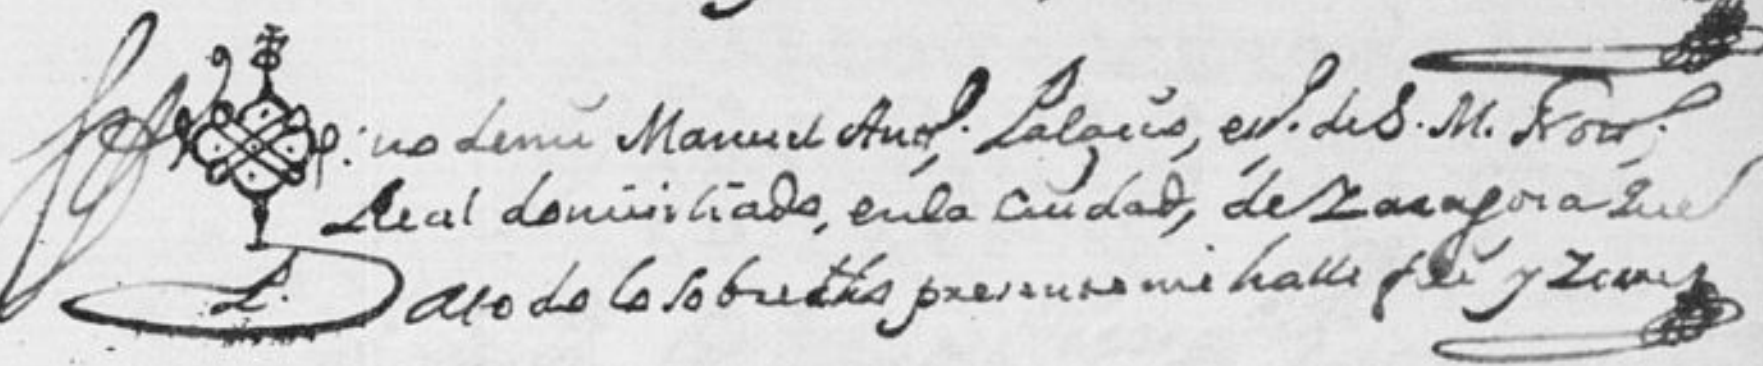 Sig no de mi Manuel Ant.º Palacio, es.no de S. M. Nott.º
Real domiciliado, en la Ciudad, de Zaragoza que
L. a todo lo sobredho presente me halle fee y